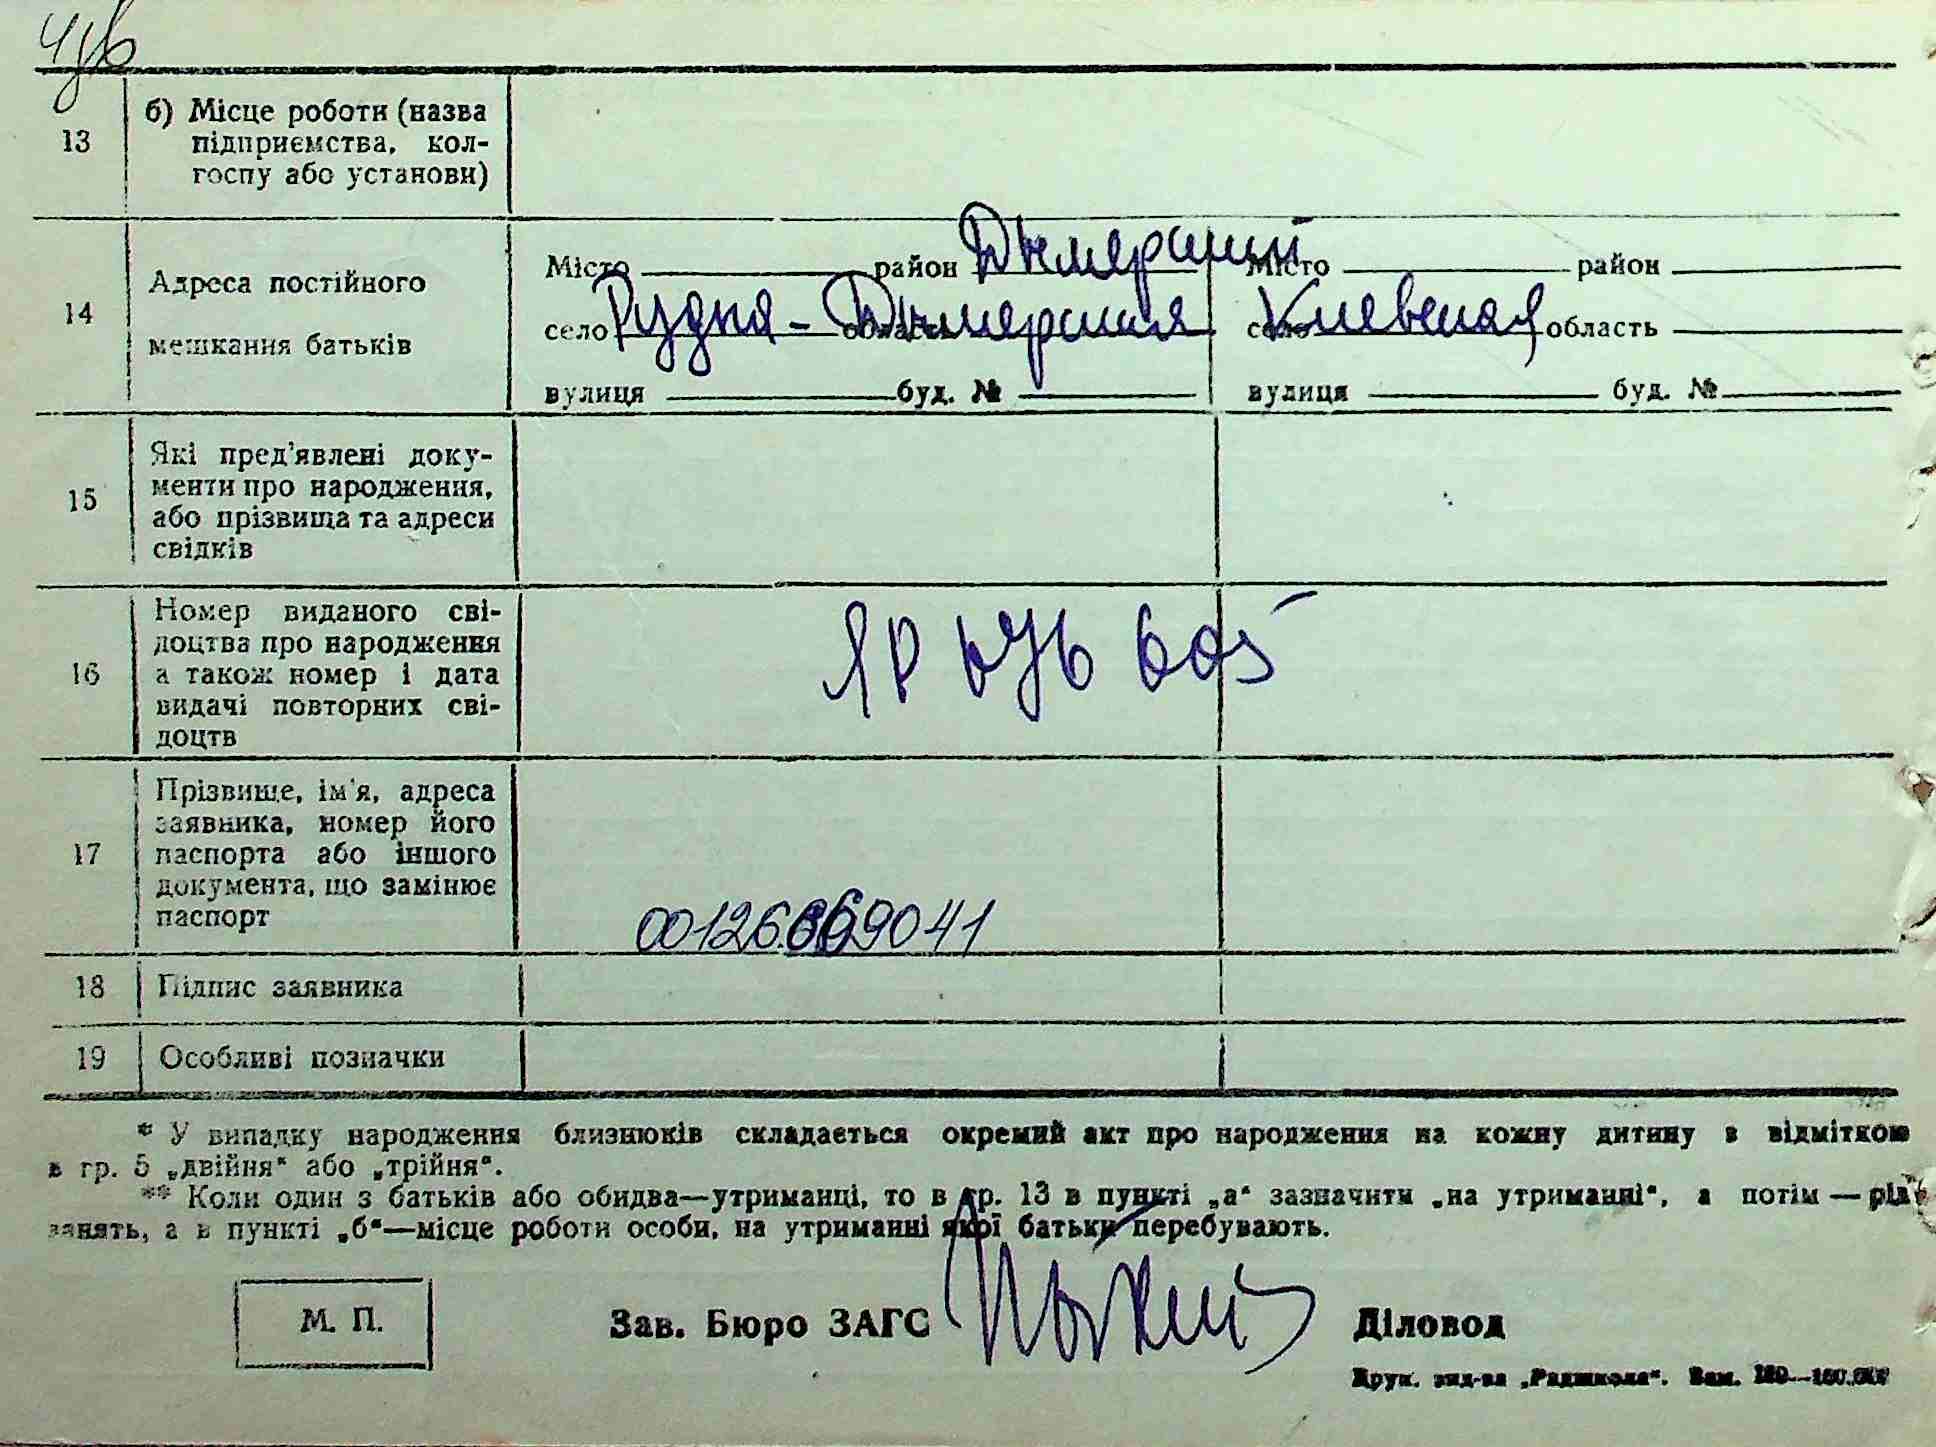 13
б) Місце роботи (назва
підприємства, кол-
госпу або установи)
14
Адреса постійного
мешкання батьків
Місто район Дымерский Місто район
село Рудня-Дымерская область село Киевская область
вулиця буд. № вулиця буд. №
15
Які пред'явлені доку-
менти про народження,
або прізвища та адреси
свідків
16
Номер виданого сві-
доцтва про народження
а також номер і дата
видачі повторних сві-
доцтв
ЯР
17
Прізвище, ім'я, адреса
заявника, номер його
паспорта або іншого
документа, що замінює
паспорт
18
Підпис заявника
19
Особливі позначки
* У випадку народження близнюків складається окремий акт про народження на кожну дитину в відміткою
в гр. 5 „двійня“ або „трійня“.
** Коли один з батьків або обидва—утриманці, то в гр. 13 в пункті „а“ зазначити „на утриманні“, а потім — рід
занять, а в пункті „б“—місце роботи особи, на утриманні якої батьки перебувають.
М. П.
Зав. Бюро ЗАГС
Діловод
Друк. вид-ва „Радшкола“. Зам.